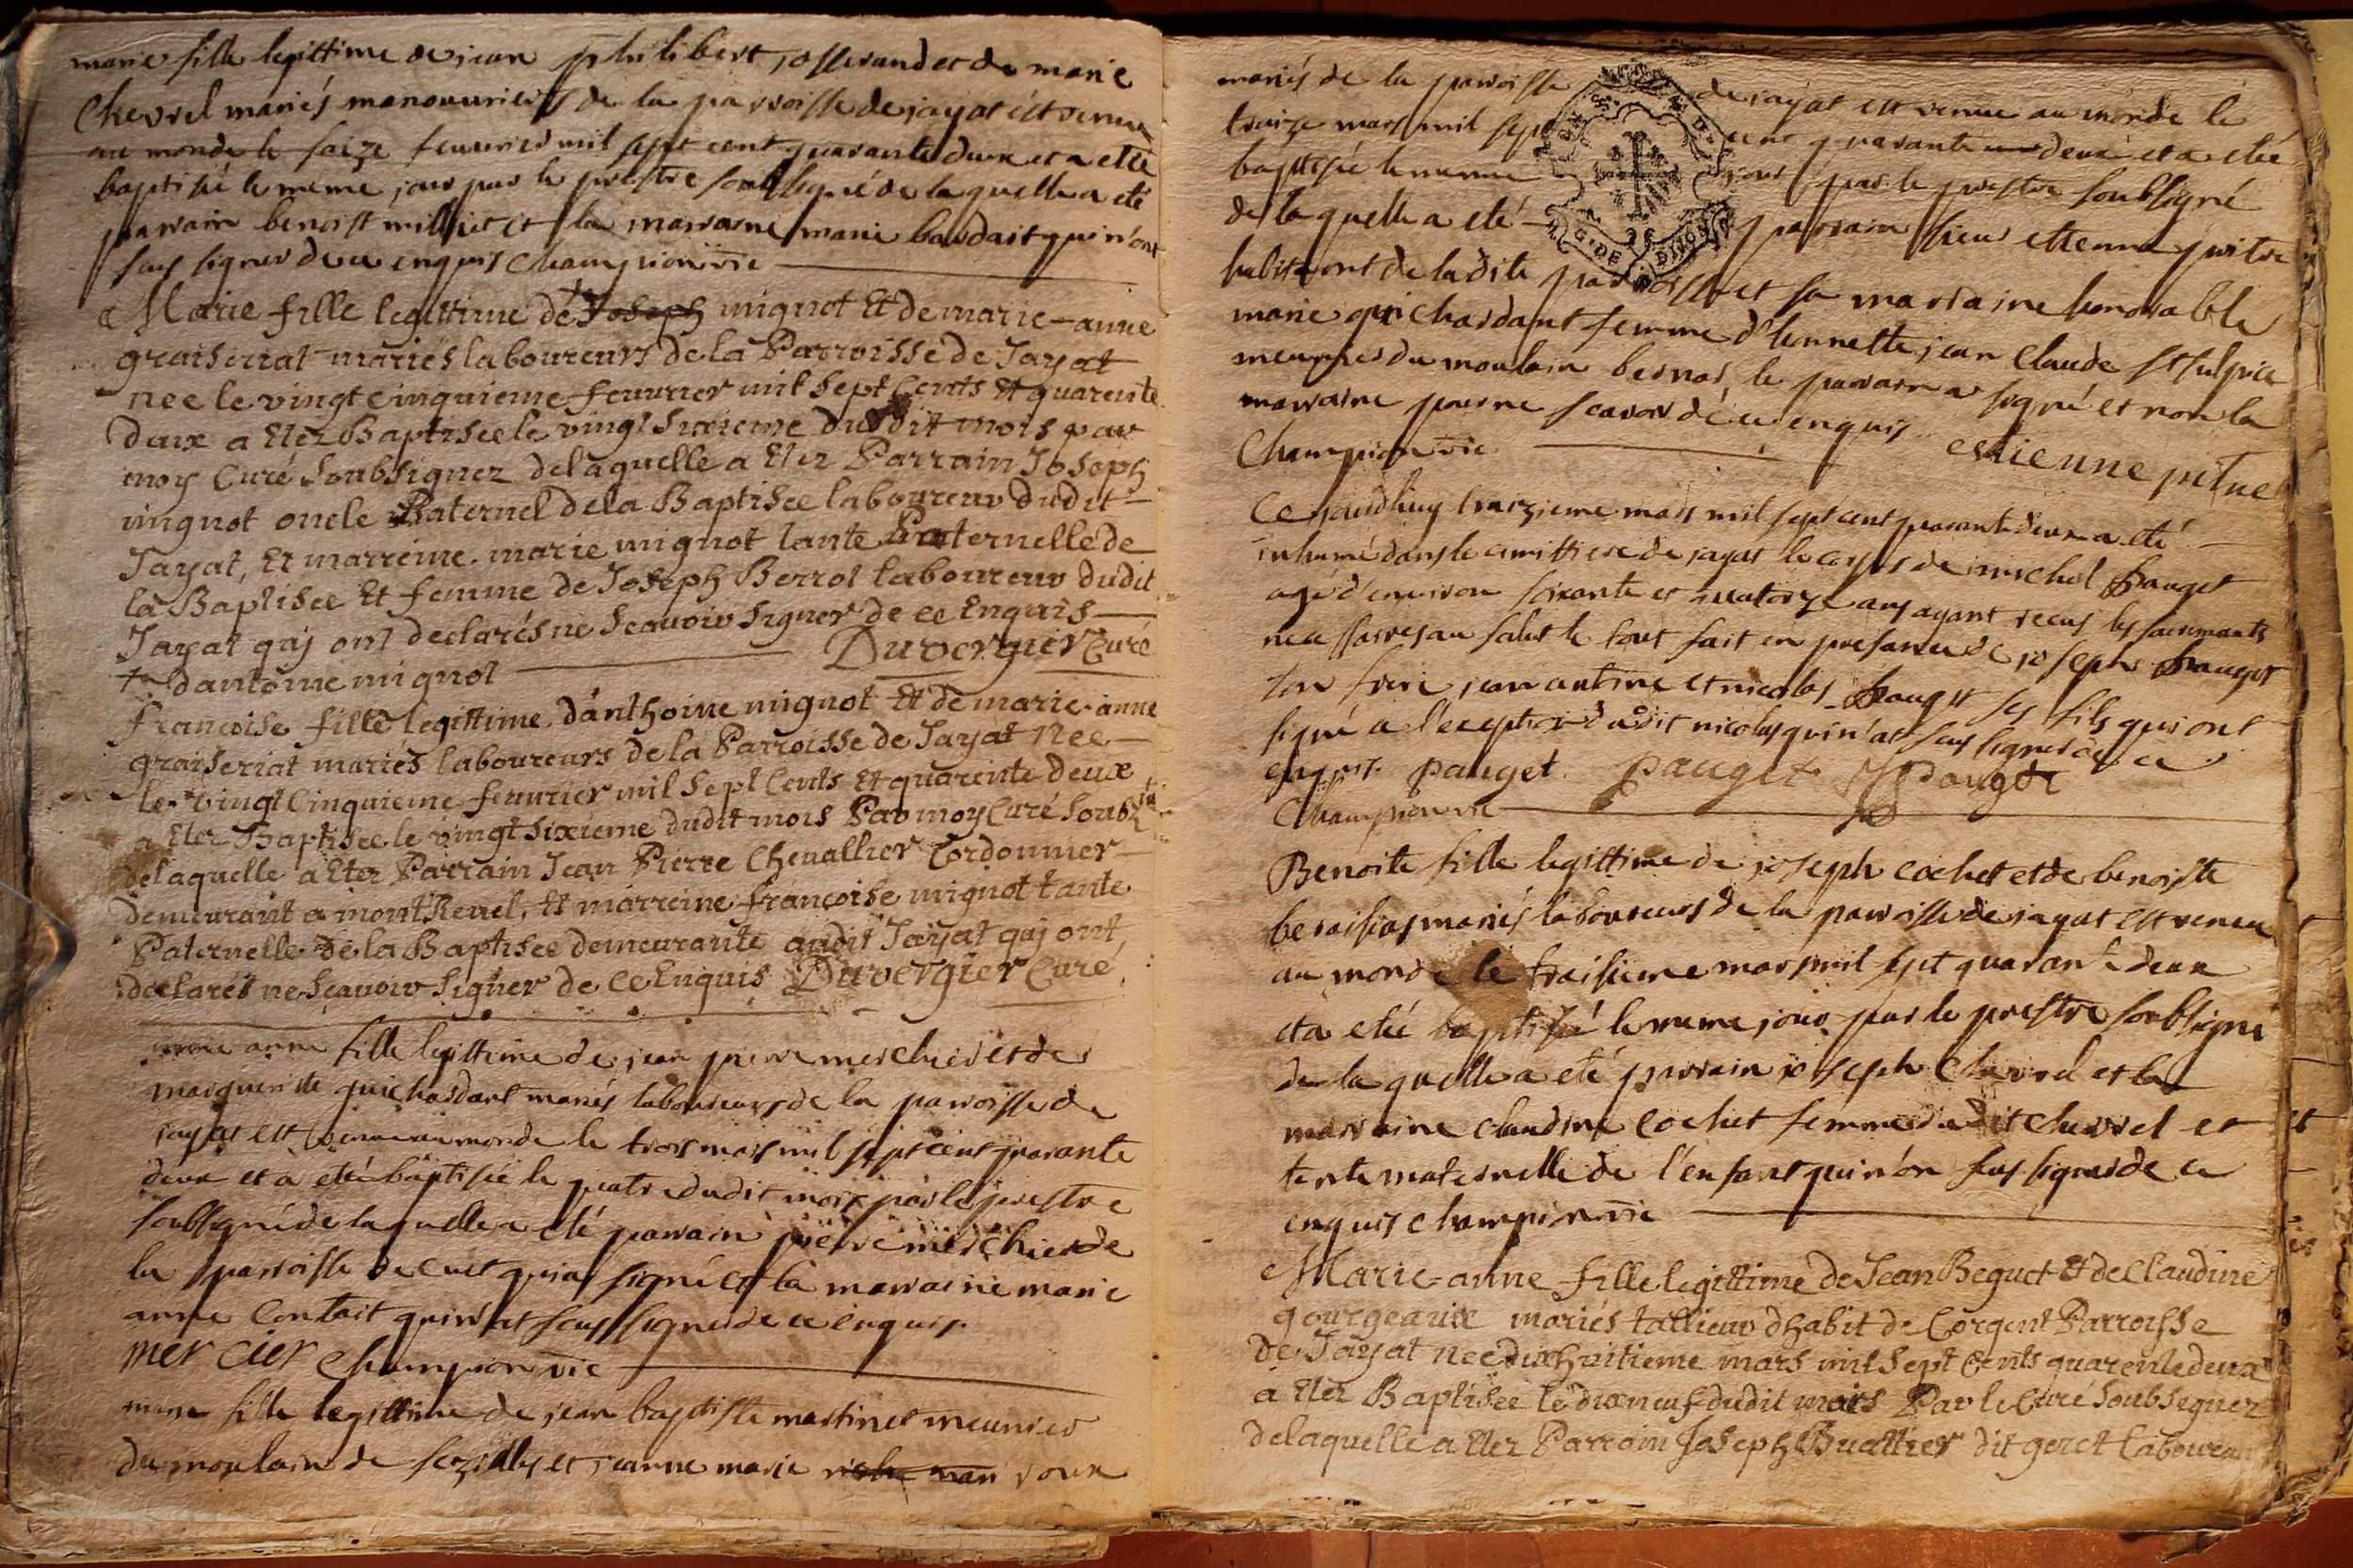 marie fille legittime de jean philibert josserand et de marie
Chevrel mariés manouvriers de la parroisse de jayat est venue
au monde le saize feuurier mil sept cent quarante deux et a etté
baptisée le meme jour par le prestre soubsigné de la quelle a eté
parrain benoist milliet et la marraine marie baudait qui n'ont
sus signer de ce enquis Champion vic
Marie fille legittime de Joseph mignot Et de marie-anne
graiseriat mariés laboureurs de la Parroisse de Jayat
nee le vingt cinquieme feuurier mil Sept Cents Et quarente
Deux a Etez Baptisee le vingt Sixieme dudit mois par
moy Curé Soubsignez delaquelle a Etez Parrain Joseph
mignot oncle Paternel dela Baptisee laboureur dudit
Jayat, Et marreine marie mignot tante Paternelle de
la Baptisee Et femme de Joseph Berrot laboureur dudit
Jayat quj ont declarés ne Scauoir Signer de ce Enquis
Duvergier Curé
dantoine mignot
francoise fille legittime d'anthoine mignot Et de marie-anne
graiseriat mariés laboureurs de la Parroisse de Jayat Nee
le vingt Cinquieme feuurier mil Sept Cents Et quarente deux
a Etez Baptisee le vingt sixieme dudit mois Par moy Curé Soub
delaquelle a Etez Parrain Jean Pierre Chevallier Cordonnier
demeurant a montRevel, Et marreine francoise mignot tante
Paternelle de la Baptisee demeurante audit Jayat quj ont
declarés ne Scauoir Signer de ce Enquis Duvergier Curé
anne fille legittime de jean pierre merchier et de
marguerite guichardant mariés laboureurs de la parroisse de
jayat est venue au monde le trois mars mil sept cent quarante
deux et a eté baptisée le quatre dudit mois par le prestre
soubsigné de la quelle a eté parrain pierre merchier de
la parroisse de cuet qui a signé et la marraine marie
anne Contait qui n'at sus signer de ce enquis
mer cier Champion vic
fille legittime de jean baptiste martinet meunier
du moulain de et jeanne marie roux
mariés de la parroisse de jayat est venue au monde le
traize mars mil sept cent quarante deux et a eté
baptisée le meme jour par le prestre soubsigné
de la quelle a eté parrain sieur ettienne
habitant de ladite parroisse et sa marraine honorable
marie guichardant femme d'honnette jean Claude st sulpice
meunier du moulain bernas, le parrain a signé et non la
marraine pour ne scavoir de ce enquis
Champion vic estienne pitue
Ce jourdhuy traizieme mars mil sept cent quarante deux a eté
inhumé dans le cimittiere de jayat le corps de michel pauget
agé d'environ soixante et quatorze ans ayant recus les sacremants
necessaires au salut le tout fait en presance de joseph pauget
son frere jean antoine et nicolas pauget ses fils qui ont
signé a l'exeption dudit nicolas qui n'at sus signer de ce
enquis pauget pauget pauget
Champion vic
Benoite fille legittime de joseph cochet et de benoiste
mariés laboureurs de la parroisse de jayat est venue
au monde le traisieme mars mil sept quarante deux
et a eté baptisé le meme jour par le prestre soubsigné
de la quelle a eté parrain joseph Chevrel et la
marraine claudine cochet femme dudit chevrel et
tente maternelle de l'enfant qui n'on sus signer de ce
enquis champion vic
Marie-anne fille legittime de Jean Beguet Et de Claudine
gourgeaux mariés tallieur dhabit de Corgent Parroisse
de Jayat nee dixhuitieme mars mil Sept Cents quarente deux
a Etez Baptisee le dixneuf dudit mois Par le Curé Soubsignez
delaquelle a Etez Parrain Joseph Buattier dit goret laboureur